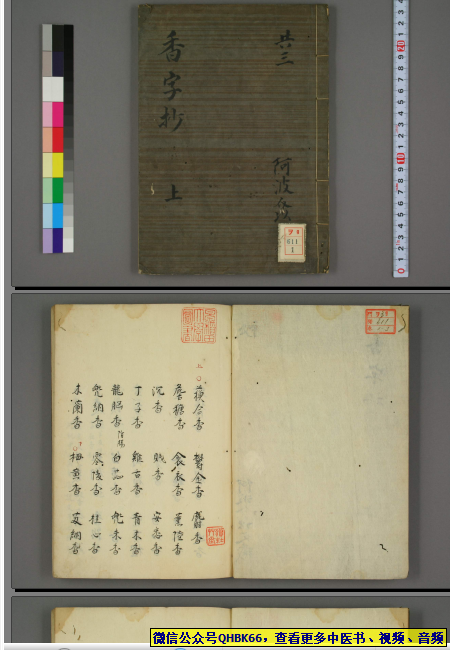 共三
阿波
香字抄 上
611
1
蘇合香 鬱金香 麝香
詹糖香 衾衣香 薫陸香
沉香 香 安息香
丁子香 雞舌香 青木香
龍脳香 香 兜末香
兜納香 零陵香 桂心香
木蘭香 香 艾納香
微信公众号QHBK66，查看更多中医书、视频、音频